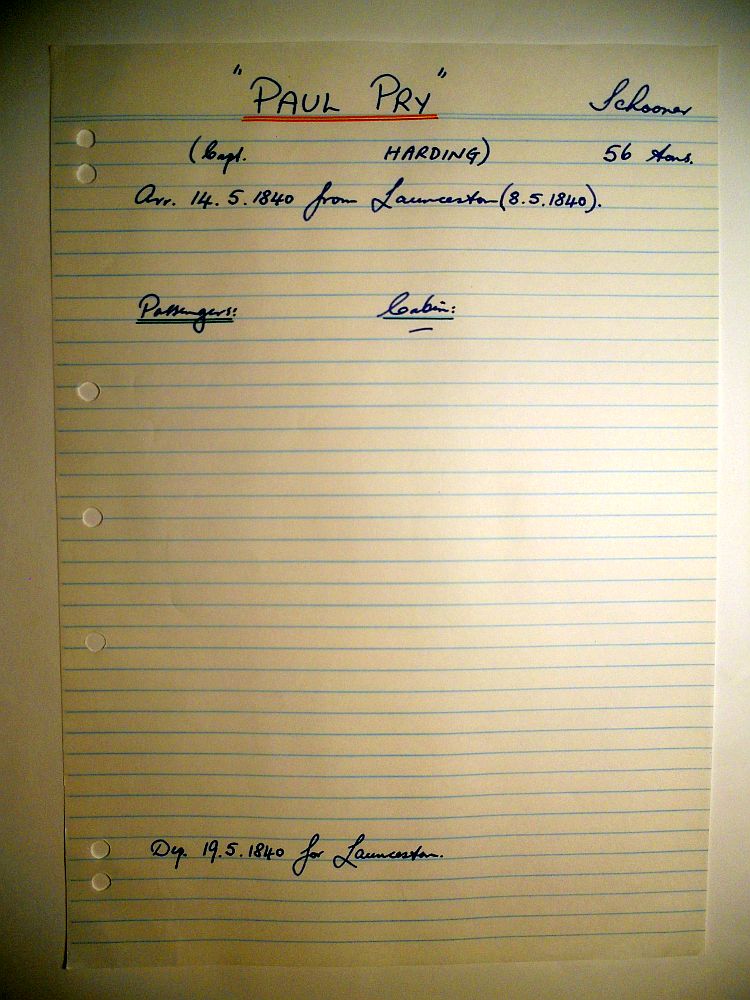 "PAUL PRY" Schooner
(Capt. HARDING) 56 tons.
Arr. 14.5.1840 from Launceston (8.5.1840).
Passengers: Cabin:
Dep. 19.5.1840 for Launceston.